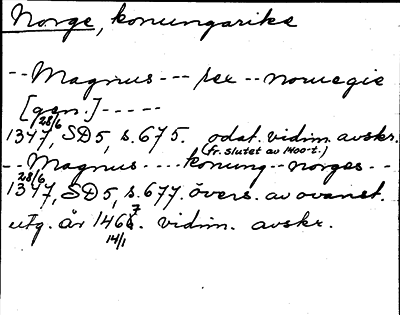 Norge, konungarike
-- Magnus --- rex -- norwegie
[gen.] -----
28/6
1347, SD 5, s. 675. odat. vidim. avskr.
(fr. slutet av 1400-t.)
-- Magnus ---- konung -- norges --
28/6
1347, SD 5, s. 677. övers. av ovanst.
utg. år 1467. vidim. avskr.
14/1